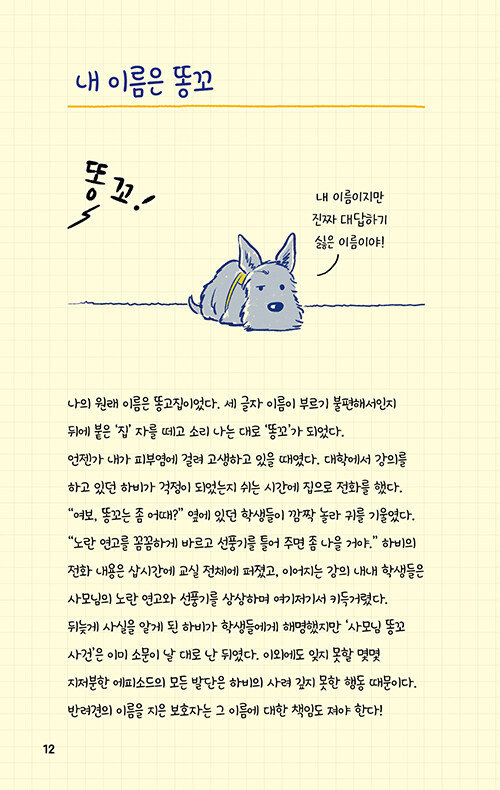 내 이름은 똥꼬
똥꼬!
내 이름이지만
진짜 대답하기
싫은 이름이야!
나의 원래 이름은 똥고집이었다. 세 글자 이름이 부르기 불편해서인지
뒤에 붙은 ‘집’ 자를 떼고 소리 나는 대로 ‘똥꼬’가 되었다.
언젠가 내가 피부염에 걸려 고생하고 있을 때였다. 대학에서 강의를
하고 있던 하비가 걱정이 되었는지 쉬는 시간에 집으로 전화를 했다.
“여보, 똥꼬는 좀 어때?” 옆에 있던 학생들이 깜짝 놀라 귀를 기울였다.
“노란 연고를 꼼꼼하게 바르고 선풍기를 틀어 주면 좀 나을 거야.” 하비의
전화 내용은 삽시간에 교실 전체에 퍼졌고, 이어지는 강의 내내 학생들은
사모님의 노란 연고와 선풍기를 상상하며 여기저기서 키득거렸다.
뒤늦게 사실을 알게 된 하비가 학생들에게 해명했지만 ‘사모님 똥꼬
사건’은 이미 소문이 날 대로 난 뒤였다. 이외에도 잊지 못할 몇몇
지저분한 에피소드의 모든 발단은 하비의 사려 깊지 못한 행동 때문이다.
반려견의 이름을 지은 보호자는 그 이름에 대한 책임도 져야 한다!
12